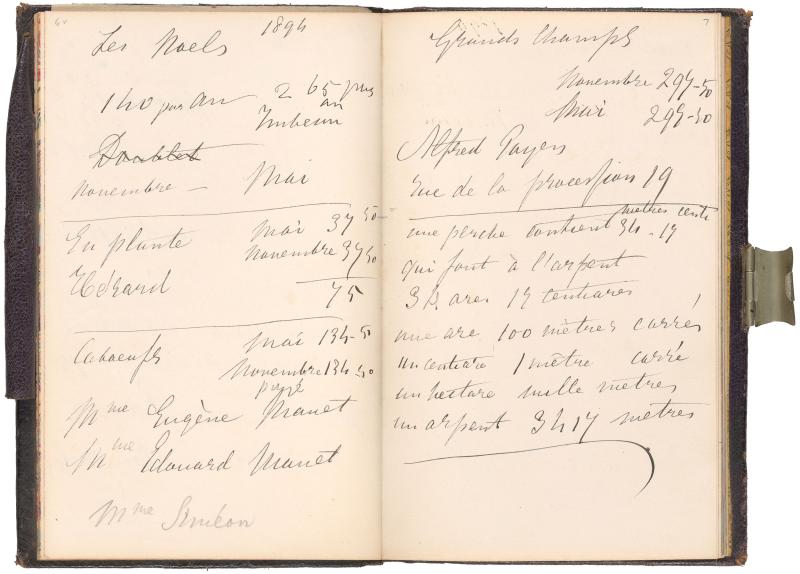 6v
Les Noels 1894
140 par an 2 65 par
an
Imbeun
Doublet
novembre — Mai
En plante Mai 37 50
novembre 37 50
Hérard 75
Caboeufs Mai 134-50
Novembre 134 50
Mme Eugène Manet
Mme Edouard Manet
Mme Siméon
7
Grands Champs
Novembre 297-50
Mai 297-50
Alfred Payen
rue de la procession 19
mètres centi
une perche contient 34-17
qui font à l'arpent
34 ares 17 centiares
une are 100 mètres carrés
un centiare 1 mètre carré
un hectare mille mètres
un arpent 3417 mètres